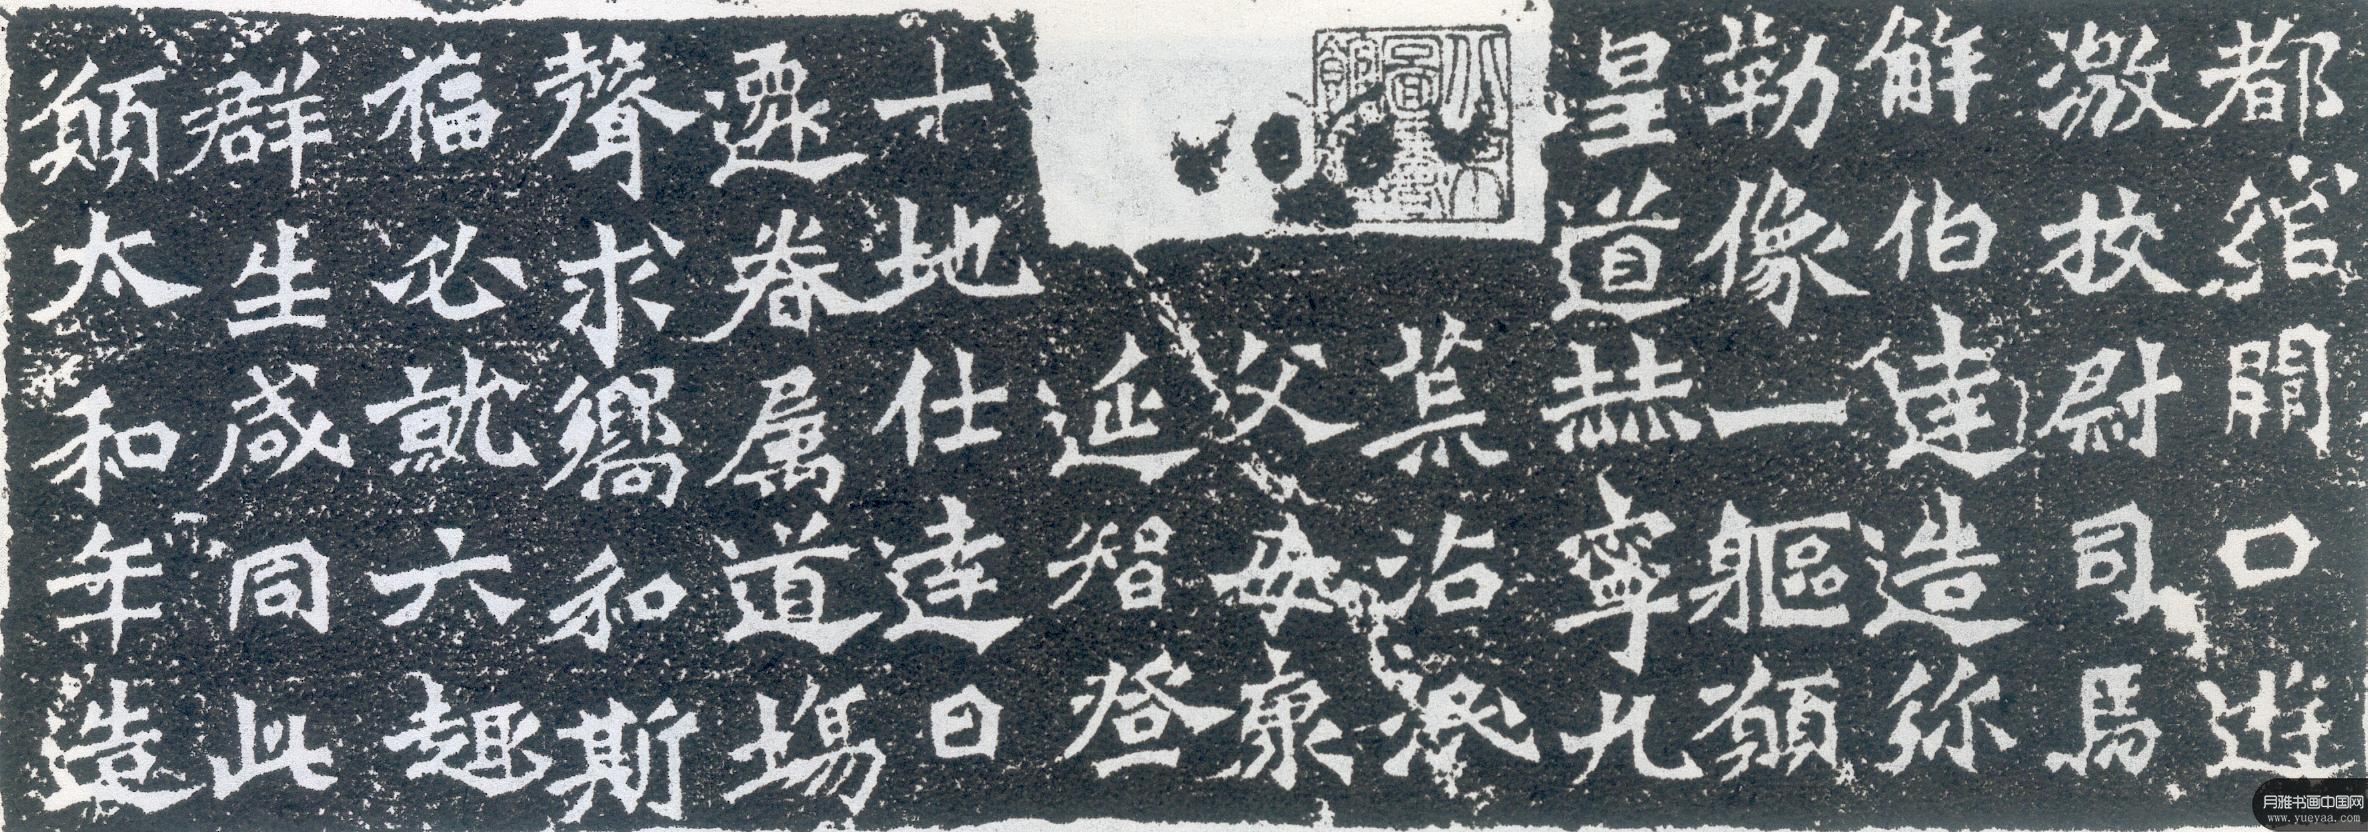 都綰闕口遊
激挍尉司馬
觧伯達造弥
勒像一軀願
皇道赫寧九
荒沾澤
父母康
延智登
十地仕達日
遷眷属道場
聲求嚮和斯
福必就六趣
群生咸同此
願太和年造
月雅书画中国网
www.yueyaa.com